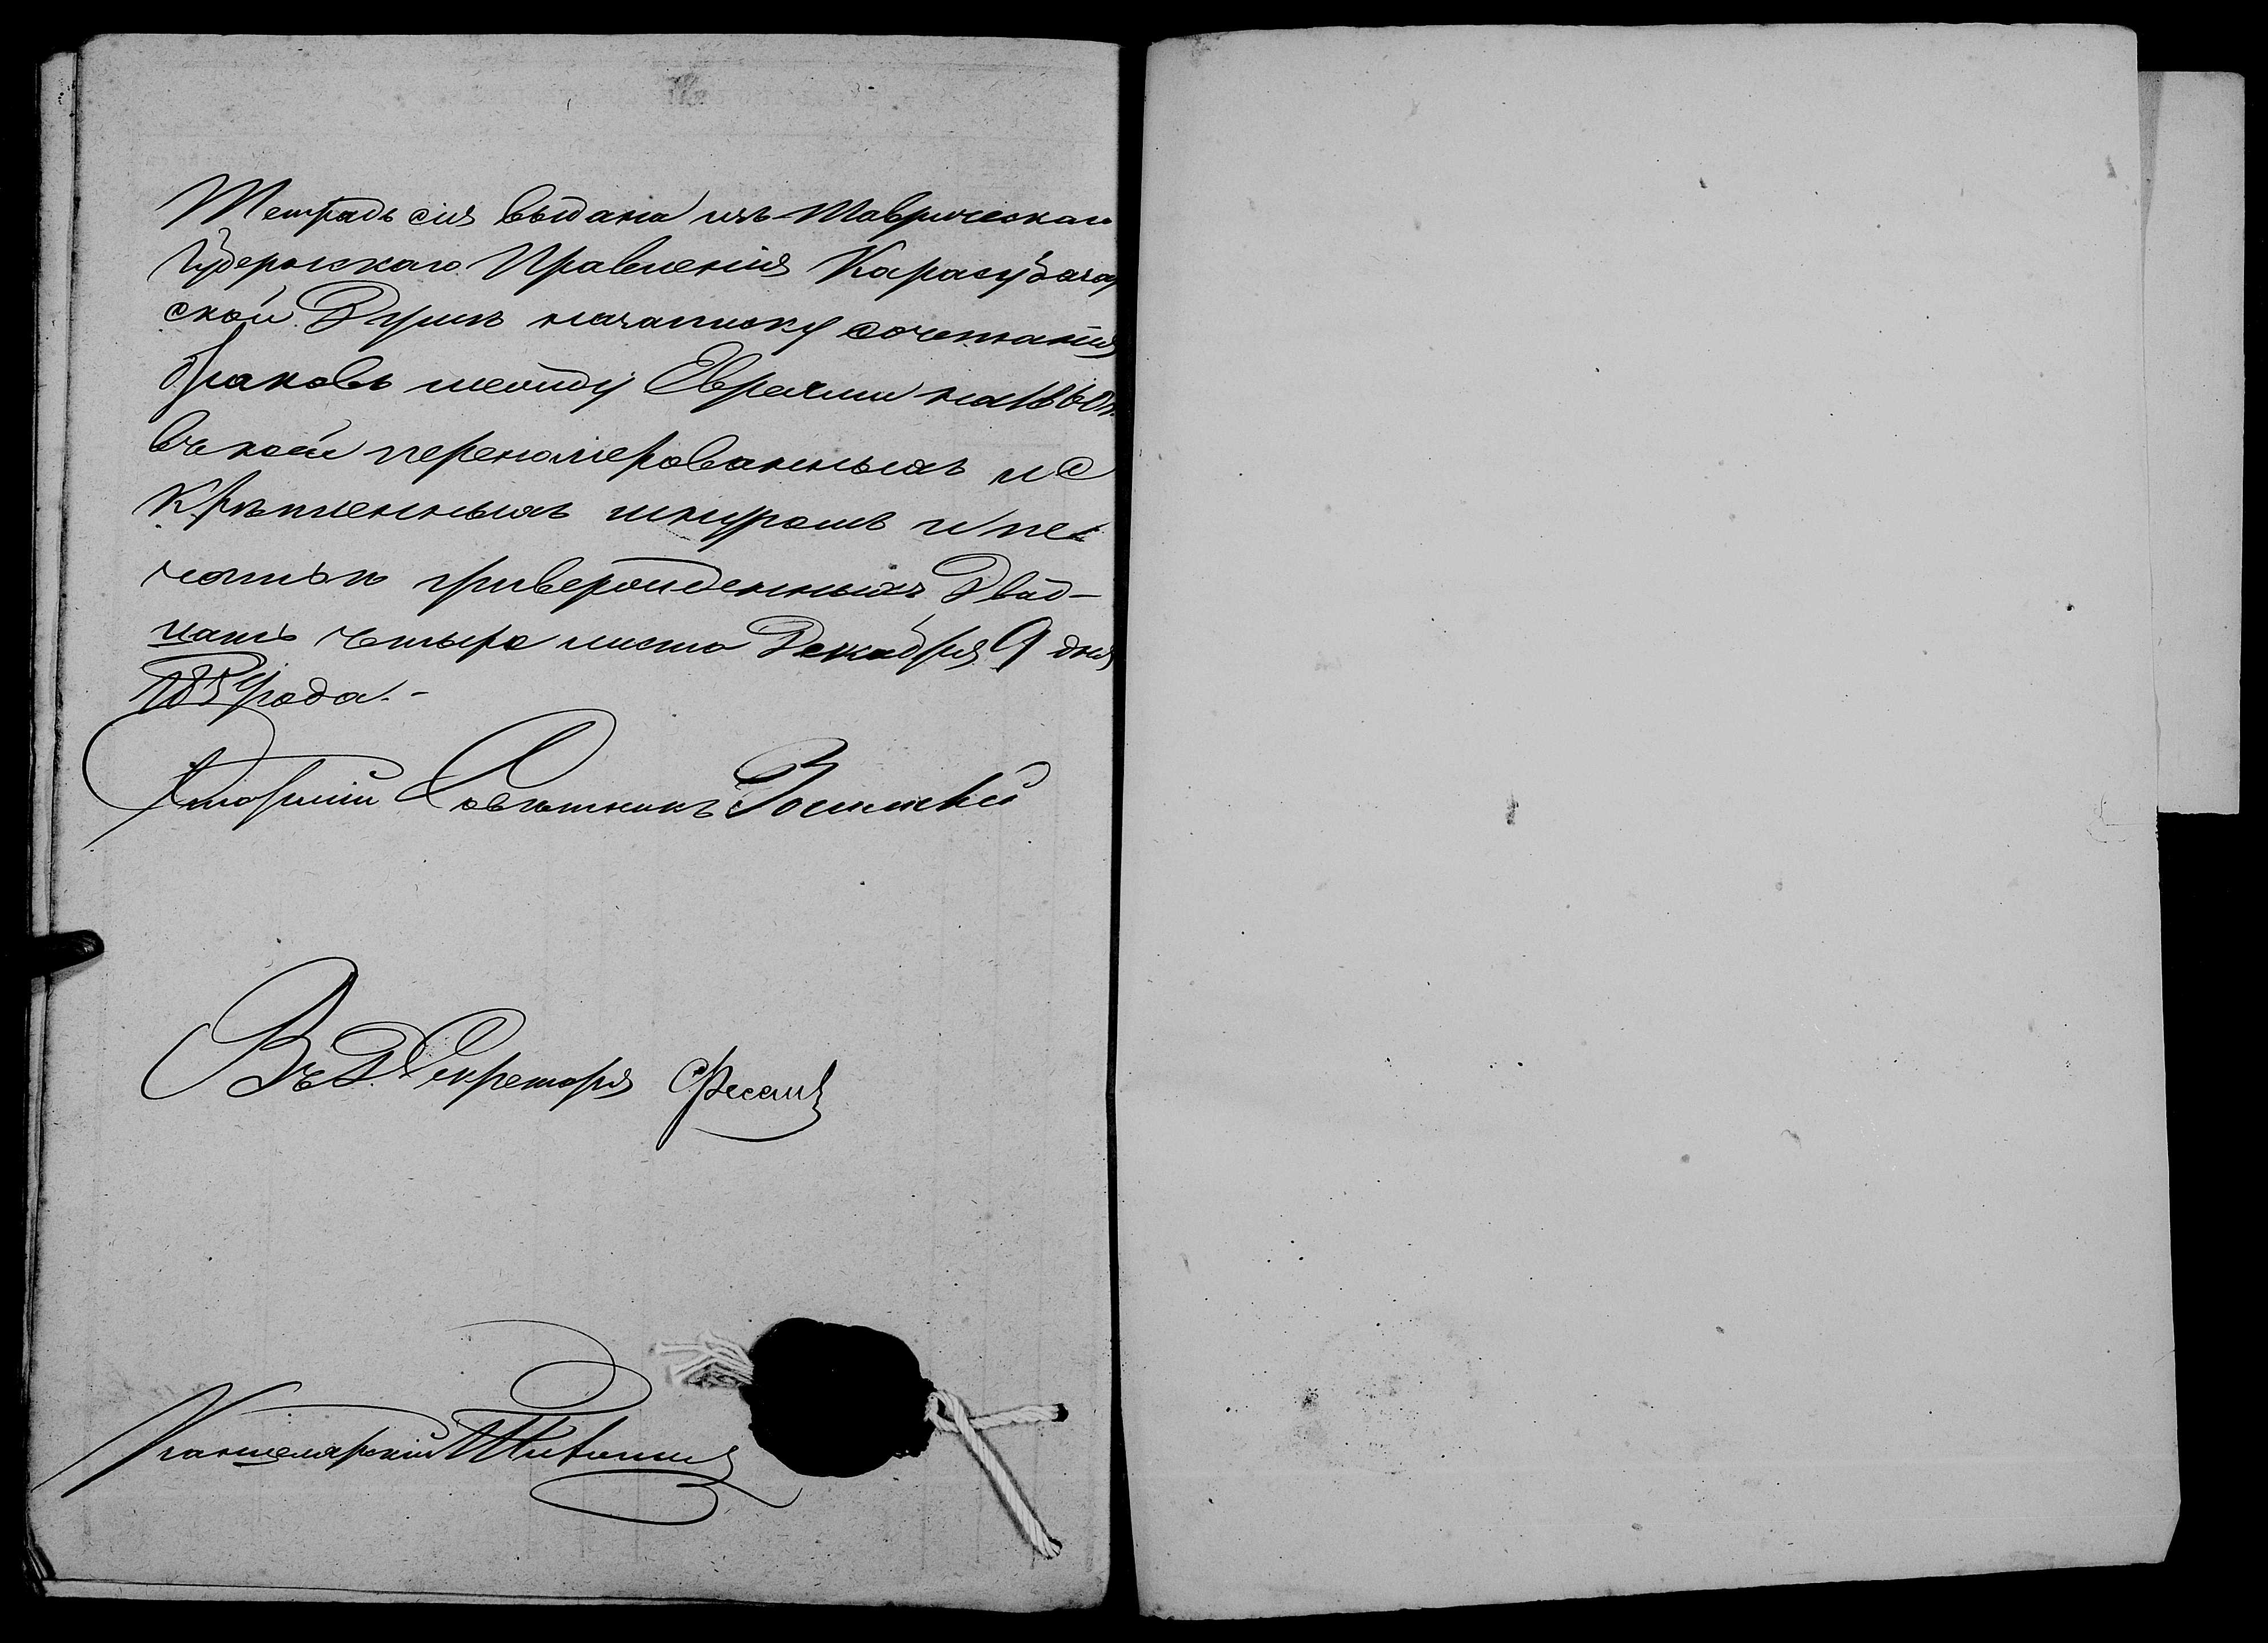 Тетрадь сія выдана изъ Таврическаго
Губернскаго Правленія Карасубазар
ской Думѣ на записку сочетанія
браковъ между Евреями на 1860 г.
въ коей перенумерованныхъ и с
крѣпленныхъ шнуромъ и пе-
чатью припровожденныхъ Двад-
цать четыре листа Декабря 9 дня
1859 года.-
Совѣтникъ
Въ Д. Секретаря
Канцелярскій